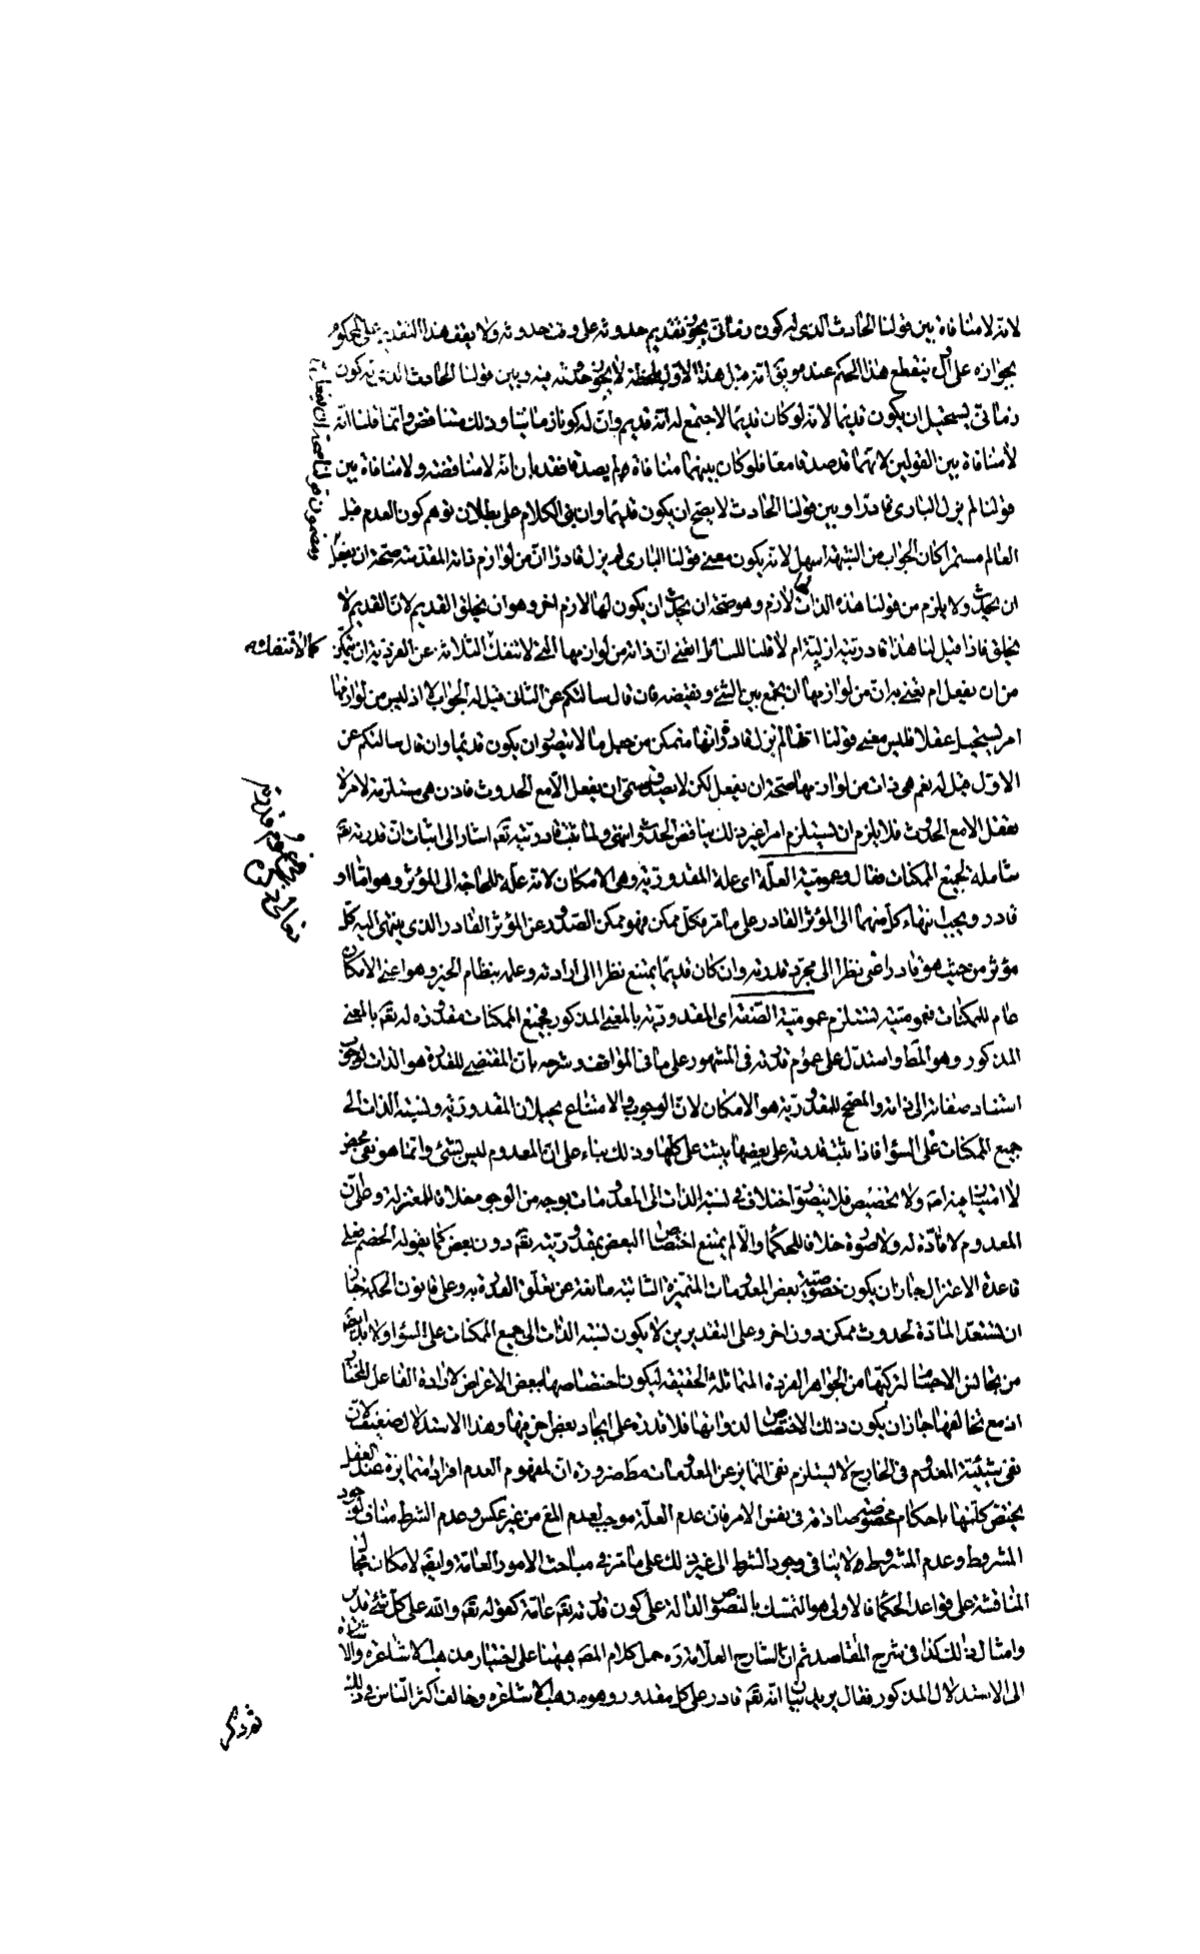 لانه لا منافاة بين قولنا الحادث الذى له كون زمانى يجوز تقديم حدوثه على وقت حدوثه ولا يقف هذا التقديم على المحكوم
بجوازه على اول ينقطع هذا الحكم عنده وبقى انه قبل هذا الاول بلحظة لا يجوز حدوثه فيه وبين قولنا الحادث الذى له كون
زمانى يستحيل ان يكون قديما لانه لو كان قديما لاجتمع له انه قديم وان له كونا زمانيا وذلك متناقض وانما قلنا انه
لا منافاة بين القولين لانهما قد صدقا معا فلو كان بينهما منافاة لم يصدقا فقد بان انه لا مناقضة ولا منافاة بين
قولنا لم يزل البارى قادرا وبين قولنا الحادث لا يصح ان يكون قديما وان بنى الكلام على بطلان توهم كون العدم قبل
العالم مستمرا كان الجواب من الشبهة اسهل لانه يكون معنى قولنا البارى لم يزل قادرا ان من لوازم ذاته المقدسة صحة ان يفعل
ان يحدث ولا يلزم من قولنا هذه الذات لها لازم وهو صحة ان يحدث ان يكون لها لازم اخر وهو ان يخلق القديم لان القديم لا
يخلق فاذا قيل لنا هذا قادريته ازلية ام لا قلنا للسائل اتعنى ان ذاته من لوازمها التى لا تنفك كما لا تنفك الثلاثة عن الفردية ان يتمكن
من ان يفعل ام تعنى به ان من لوازمها ان يجمع بين الشئ ونقيضه فان قال سالتكم عن الثانى قيل له الجواب لا اذ ليس من لوازمها
امر يستحيل عقلا فليس معنى قولنا انها لم يزل قادرة انها متمكن من جعل ما لا يتصور ان يكون قديما وان قال سالتكم عن
الاول قيل له نعم هى ذات من لوازمها صحة ان يفعل لكن لا يصدق مسمى ان يفعل الا مع الحدوث فاذن هى مستلزمة لامر لا
يعقل الا مع الحدوث فلا يلزم ان يستلزم امرا غير ذلك يناقض الحدوث انتهى ولما ثبت قادريته تعم اشار الى اثبات ان قدرته تعم
شاملة لجميع الممكنات فقال وعمومية العلة اى علة المقدورية وهى الامكان لانه علة للحاجة الى المؤثر وهو اما او
قادر ويجب انتهاء كل منهما الى المؤثر القادر على ما مر فكل ممكن فهو ممكن الصدور عن المؤثر القادر الذى ينتهى اليه كل
مؤثر من حيث هو قادر اعنى نظرا الى مجرد قدرته وان كان قديما يمتنع نظرا الى ارادته وعلمه بنظام الخير وهو اعنى الامكان
عام للممكنات فعموميته تستلزم عمومية الصفة اى المقدورية بالمعنى المذكور فجميع الممكنات مقدورة له تعم بالمعنى
المذكور وهو المط واستدل على عموم قدرته فى المشهور على ما فى المواقف وشرحه بان المقتضى للقدرة هو الذات لوجوب
استناد صفاته الى ذاته والمصحح للمقدورية هو الامكان لان الوجوب والامتناع يحيلان المقدورية ونسبة الذات الى
جميع الممكنات على السواء فاذا ثبت قدرته على بعضها ثبت على كلها وذلك بناء على ان المعدوم ليس بشئ وانما هو نفى محض
لا امتياز فيه اصلا ولا تخصيص فلا يتصور اختلاف فى نسبة الذات الى المعدومات بوجه من الوجوه خلافا للمعتزلة وعلى ان
المعدوم لا مادة له ولا صورة خلافا للحكماء والا لم يمتنع اختصاص البعض بمقدوريته تعم دون بعض كما يقوله الخصم فعلى
قاعدة الاعتزال جاز ان يكون خصوصية بعض المعدومات المتميزة الثابتة مانعة عن تعلق القدرة به وعلى قانون الحكمة جاز
ان تستعد المادة لحدوث ممكن دون اخر وعلى التقديرين لا يكون نسبة الذات الى جميع الممكنات على السواء ولا بد ايضا
من تجانس الاجسام لتركبها من الجواهر الفردة المتماثلة الحقيقة ليكون اختصاصها ببعض الاعراض لارادة الفاعل المختار
اذ مع تخالفها جاز ان يكون ذلك الاختصاص لذواتها فلا قدرة على ايجاد بعض اخر فيها وهذا الاستدلال ضعيف لان
نفى شيئية المعدوم فى الخارج لا يستلزم نفى التمايز عن المعدومات مط ضرورة ان لمفهوم العدم افرادا متمايزة عند العقل
يختص كل منها باحكام مخصوصة صادقة فى نفس الامر فان عدم العلة موجب لعدم المع من غير عكس وعدم الشرط مناف لوجود
المشروط وعدم المشروط لا ينافى وجود الشرط الى غير ذلك على ما مر فى مباحث الامور العامة وايضا لامكان المجال
المناقشة على قواعد الحكماء فالاولى هو التمسك بالنصوص الدالة على كون قدرته تعم عامة كقوله تعم والله على كل شئ قدير
وامثال ذلك كذا فى شرح المقاصد ثم ان الشارح العلامة ره حمل كلام المصه هيهنا على اختيار مذهب الاشاعرة والاشارة
الى الاستدلال المذكور فقال يريد بيان انه تعم قادر على كل مقدور وهو مذهب الاشاعرة وخالف اكثر الناس فى ذلك
كما لا تنفك
فى عموم قدرته
تعالى